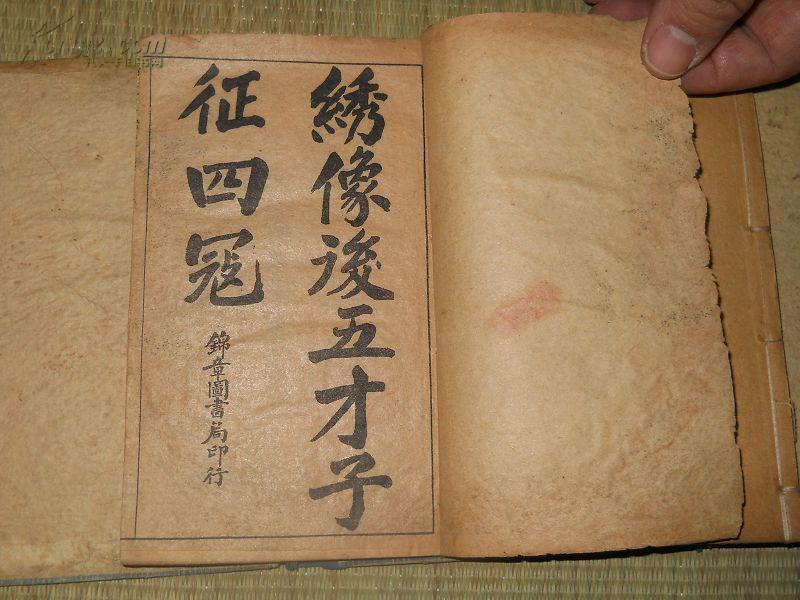 綉像後五才子
征四冦
錦章圖書局印行